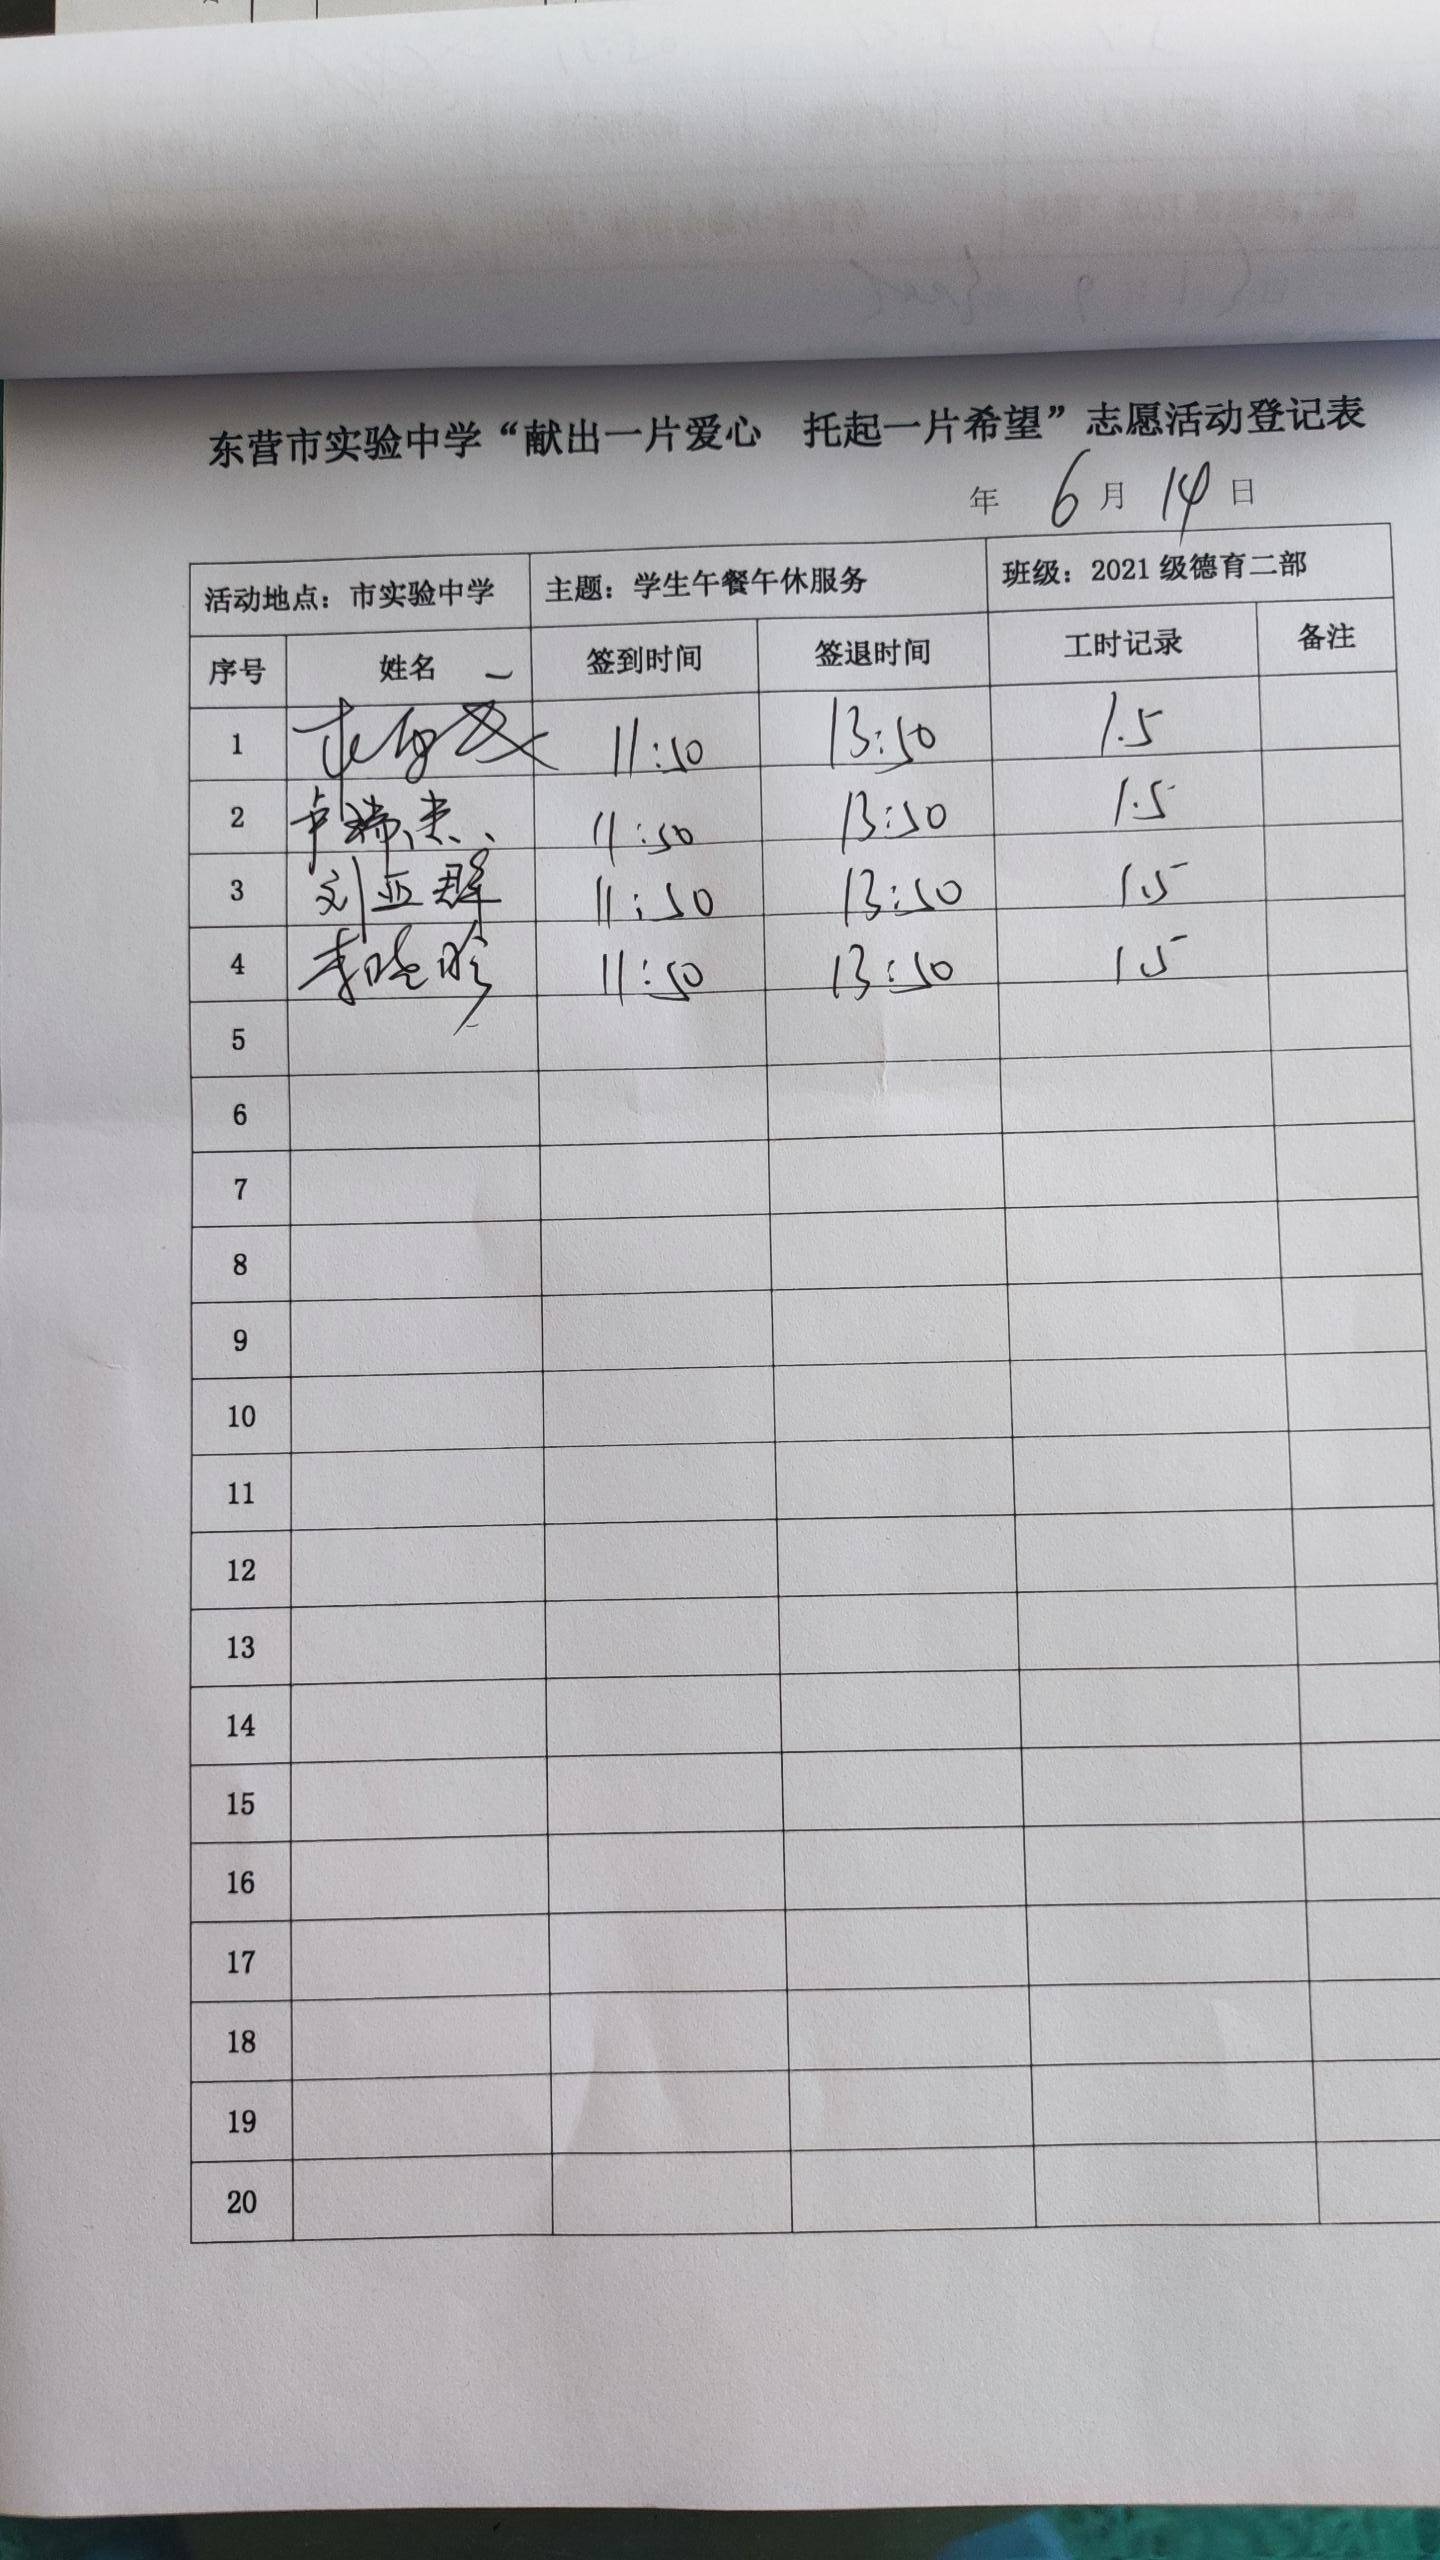 东营市实验中学“献出一片爱心　托起一片希望”志愿活动登记表
年 6 月 14 日
活动地点：市实验中学 主题：学生午餐午休服务 班级：2021 级德育二部
序号 姓名 签到时间 签退时间 工时记录 备注
1 11:50 13:50 1.5
2 卢瑞杰 11:50 13:50 1.5
3 刘亚群 11:50 13:50 1.5
4 李晓 11:50 13:50 1.5
5
6
7
8
9
10
11
12
13
14
15
16
17
18
19
20